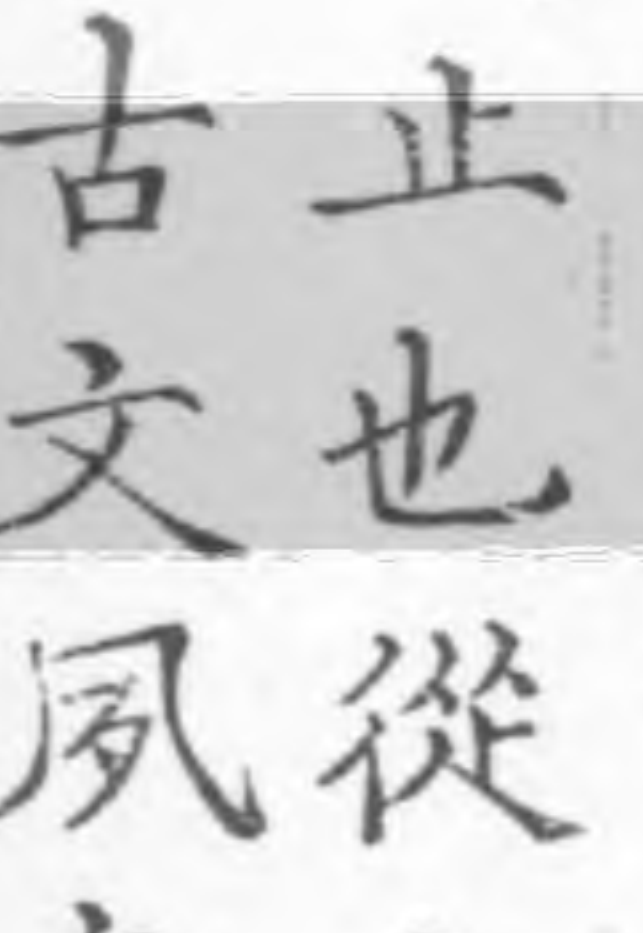 止也從
古文夙